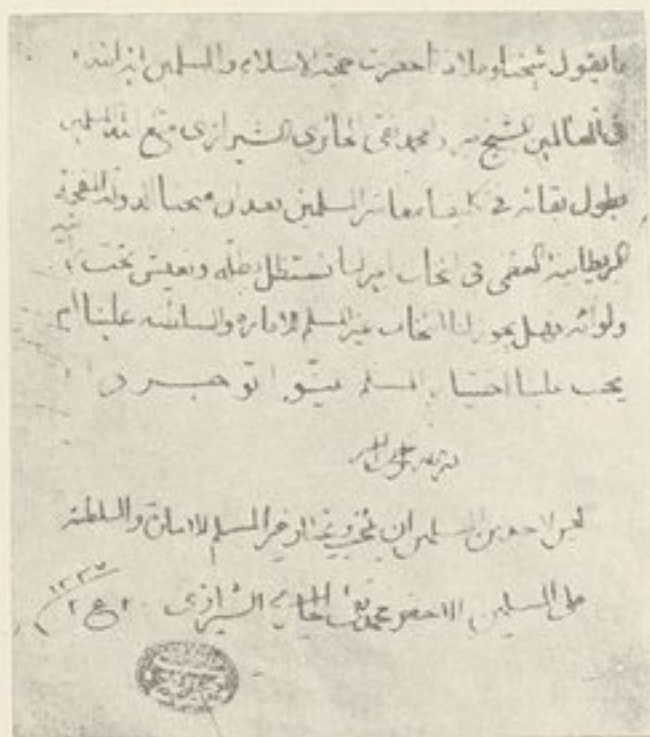 ما يقول شيخنا وملاذنا حضرت حجة الاسلام والمسلمين اية الله
في العالمين الشيخ ميرزا محمد تقي الحائري الشيرازي متع الله المسلمين
بطول بقائه في تكليفنا معاشر المسلمين بعد ان منحتنا الدولة المفخمة
البريطانية العظمى في انتخاب امير لنا نستظل بظله ونعيش تحت رايته
ولوائه فهل يجوز لنا انتخاب غير المسلم للامارة والسلطنة علينا ام
يجب علينا اختيار المسلم بينوا توجروا
ليس لاحد من المسلمين ان ينتخب ويختار غير المسلم للامارة والسلطنة
على المسلمين الاحقر محمد تقي الحائري الشيرازي ٢٠ ع ٢ ١٣٣٧